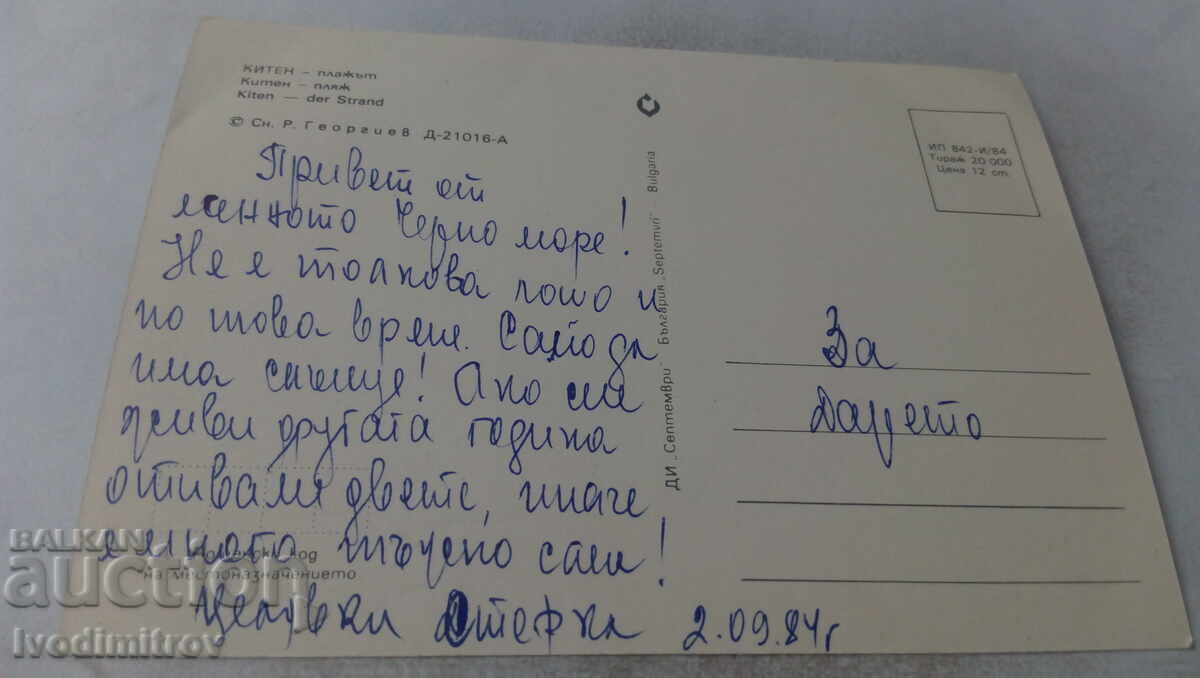 КИТЕН – плажът
Китен – пляж
Kiten — der Strand
© Сн. Р. Георгиев Д-21016-А
Привет от
Черно море!
Не е толкова лошо и
по това време. Само да
има слънце! Ако сме
живи другата година
отиваме двете, иначе
много тъчено сам!
Целувки Стефка 2.09.84г
Адресен код
на местоназначението
ДИ „Септември" България „Septemvri" - Bulgaria
ИП 842-И/84
Тираж 20 000
Цена 12 ст.
За
BALKAN
auction
Ivodimitrov